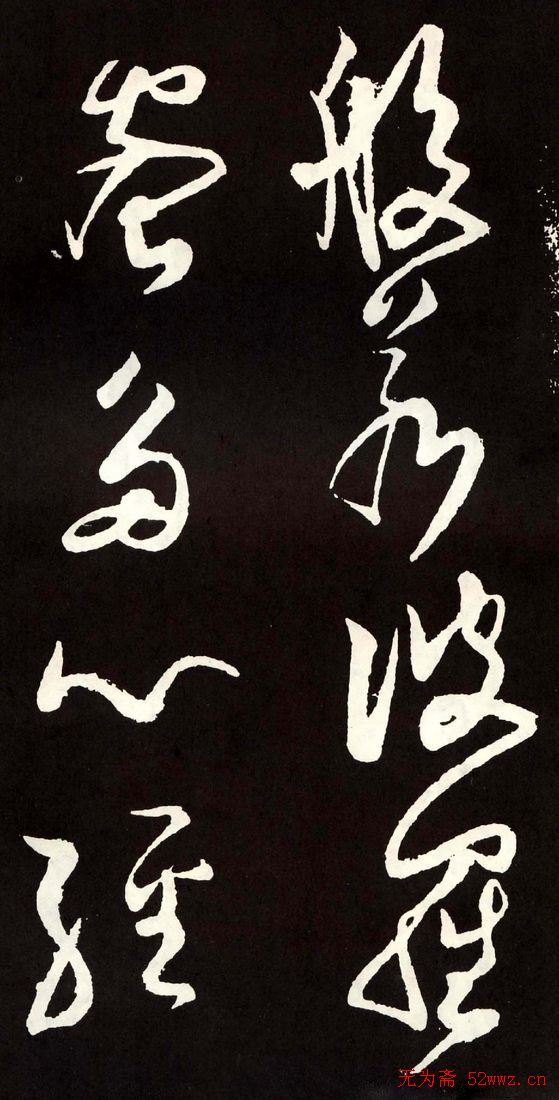 般若波羅
蜜多心經
无为斋 52wwz.cn